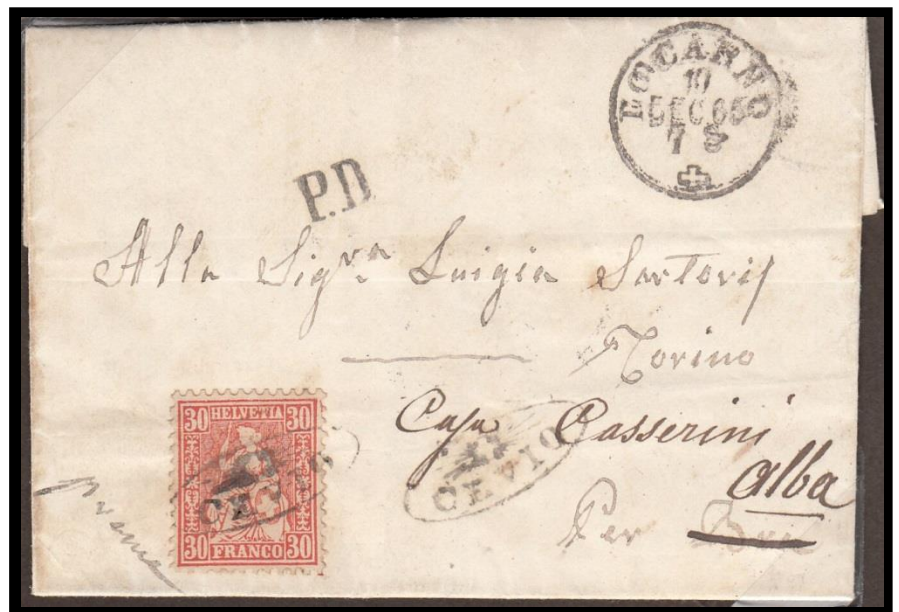 LOCARNO
10
DEC 65
7 S
P.D
Alla Sigra Luigia Sartoris
Torino
Casa Casserini
CEVIO
Alba
Per
30 HELVETIA 30
CEVIO
30 FRANCO 30
preme